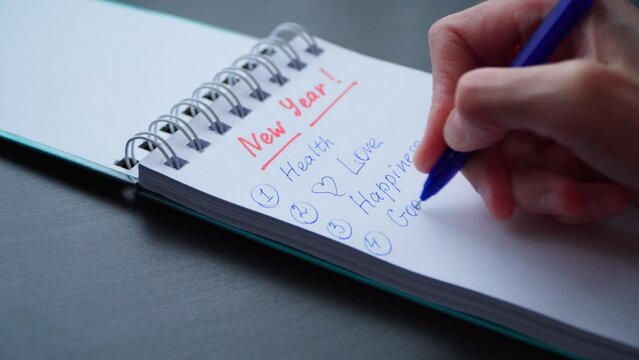 New Year!
① Health
② ♡ Love
③ Happiness
④ Goo